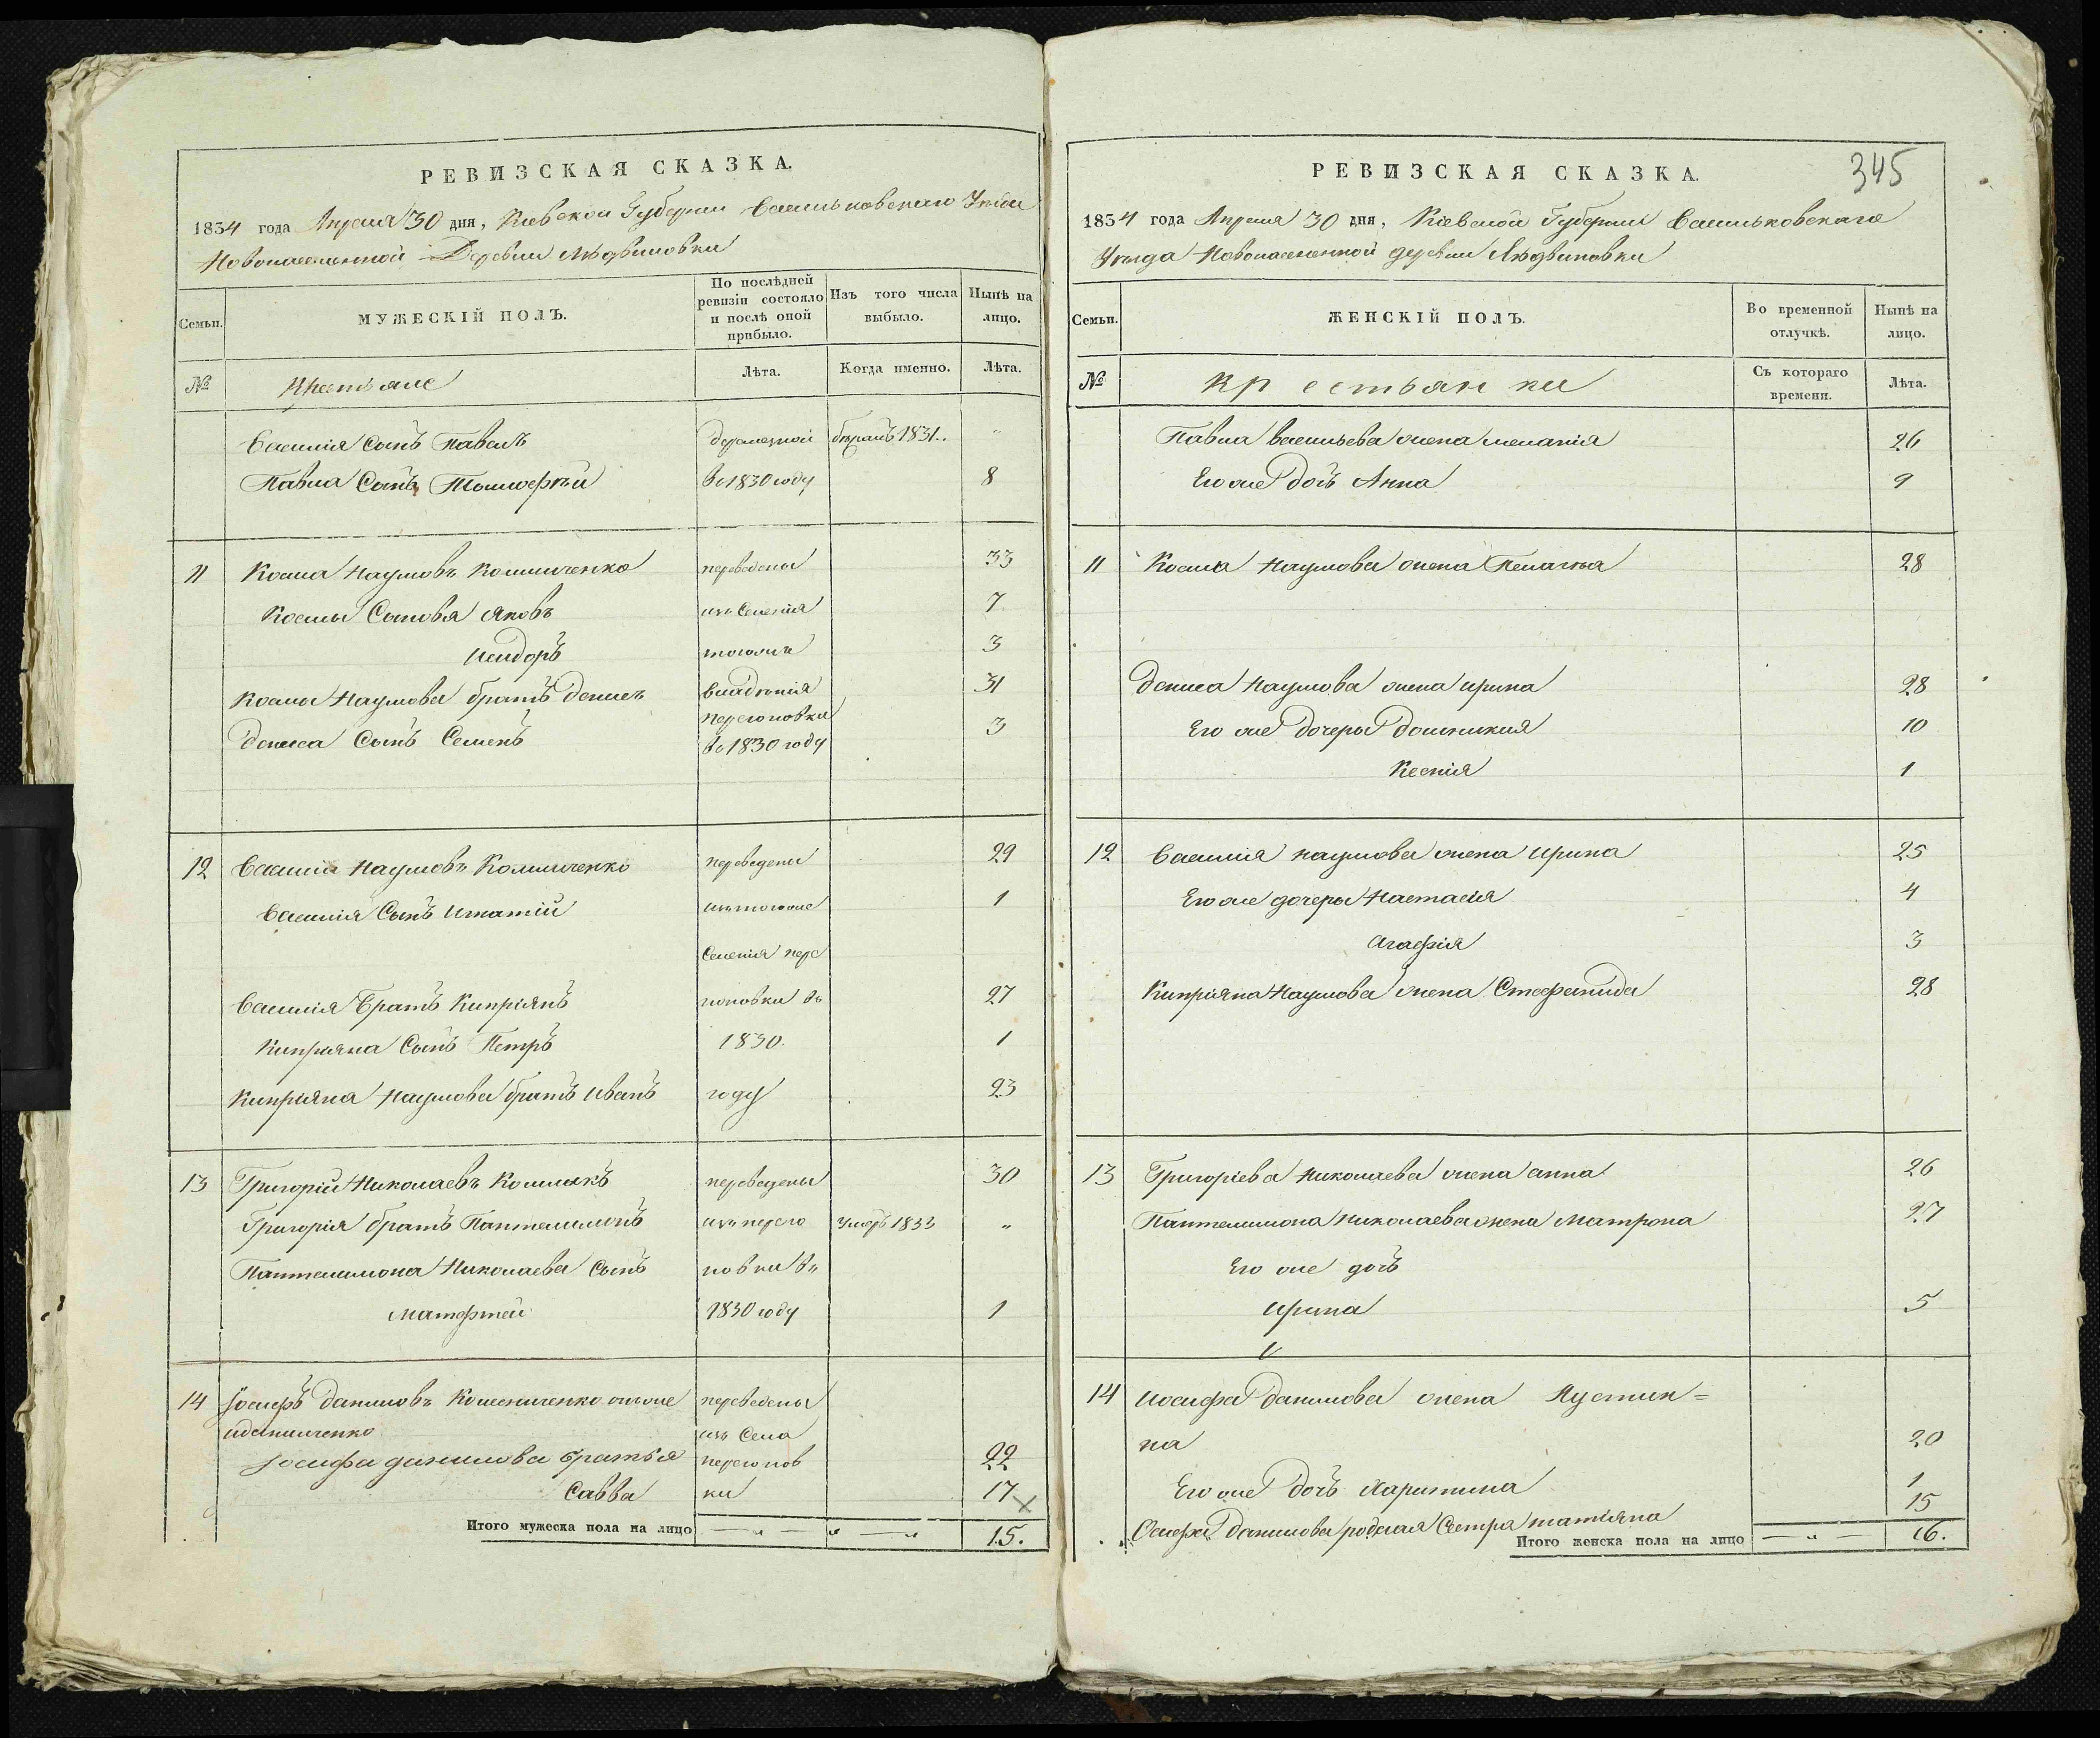 РЕВИЗСКАЯ СКАЗКА.
1834 года Апреля 30 дня, Киевской Губернии Васильковскаго Уезда
Новонаселенной Деревни Людвиновки
Семьи.
МУЖЕСКІЙ ПОЛЪ.
По послѣдней ревизіи состояло и послѣ оной прибыло.
Изъ того числа выбыло.
Нынѣ на лицо.
№
Крестьяне
Лѣта.
Когда именно.
Лѣта.
Василія Сынъ Павелъ бѣжалъ 1831.. "
Павла Сынъ Тымофѣй въ 1830 году 8
11 Косма Наумовъ Климченко переведены 33
Космы Сыновя Яковъ изъ Селенія 7
Исидоръ тогожъ 3
Космы Наумова братъ Денисъ 31
Перегоновки
Дениса Сынъ Семенъ въ 1830 году 3
12 Василій Наумовъ Климченко переведены 29
Василія Сынъ Игнатій изъ тогоже 1
Селенія пере
Василія Братъ Кипріянъ гоновки въ 27
Кипріяна Сынъ Петръ 1830. 1
Кипріяна Наумова братъ Иванъ году 23
13 Григорій Николаевъ переведены 30
Григорія братъ Пантелимонъ изъ перего Умеръ 1833 "
Пантелимона Николаева Сынъ новки въ
Матфтей 1830 году 1
14 Іосифъ Даниловъ онже переведены
иданиленко изъ Села
Іосифа данилова братья перегонов 22
Савва ки 17
Итого мужеска пола на лицо — " — " — " 15.
345
РЕВИЗСКАЯ СКАЗКА.
1834 года Апреля 30 дня, Кіевской Губерніи Васильковскаго
Уѣзда Новонаселенной деревни Людвиновки
Семьи.
ЖЕНСКІЙ ПОЛЪ.
Во временной отлучкѣ.
Нынѣ на лицо.
№
Крестьянки
Съ котораго времени.
Лѣта.
Павла васильева жена меланія 26
Его же дочъ Анна 9
11 Косма Наумова жена Пелагея 28
Дениса Наумова жена ирина 28
Его же Дочеры Домникия 10
Ксенія 1
12 Василия наумова жена Ирина 25
Его же дочеры Настасія 4
Агафія 3
Кипріяна Наумова жена Стефанида 28
13 Григоріева Николаева жена анна 26
Пантелимона Николаева жена Матрона 27
Его же дочъ
Ирина 5
14 Иосифа Данилова жена Иустин=
на 20
Его же Дочъ Харитина 1
Осифа Данилова родная Сестра татіяна 15
Итого женска пола на лицо — " — 16.